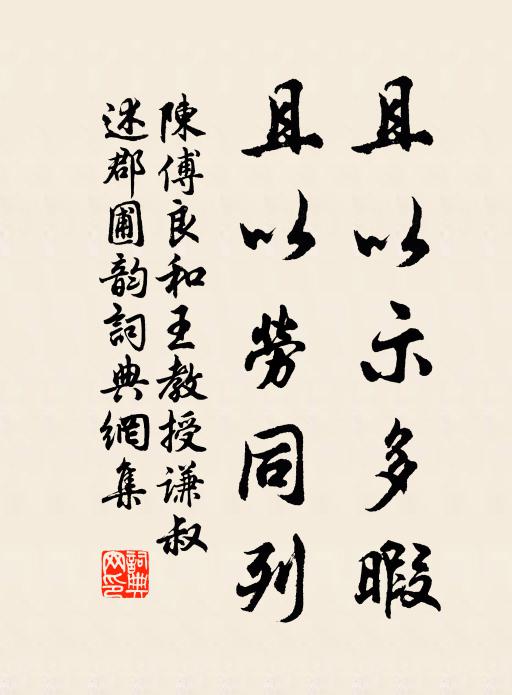 且以示多暇
且以勞同列
陳傅良和王教授謙叔
述郡圃韵詞典網集
詞典网印